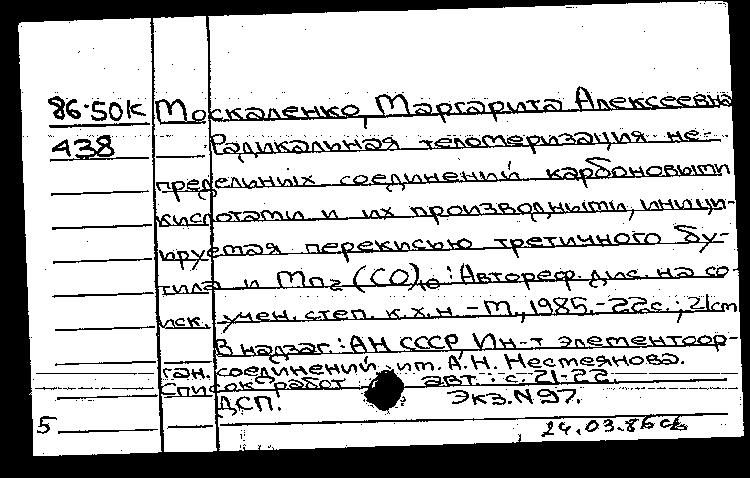 86-50К Москаленко, Маргарита Алексеевна
438 Радикальная теломеризация не-
предельных соединений карбоновыми
кислотами и их производными, иници-
ируемая перекисью третичного бу-
тила и Mn2(CO)10 : Автореф. дис. на со-
иск. учен. степ. к.х.н. - М., 1985. - 22с. ; 21см
В надзаг.: АН СССР Ин-т элементоор-
ган. соединений им. А.Н. Несмеянова.
Список работ авт.: с. 21-22.
ДСП. Экз. N 97.
5 24.03.86